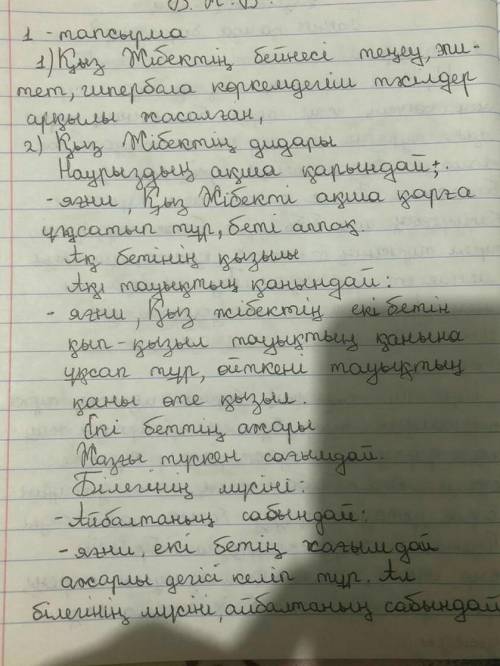 1-тапсырма
1) Қыз Жібектің бейнесі теңеу, эпи-
тет, гипербала көркемдегіш тәсілдер
арқылы жасалған,
2) Қыз Жібектің дидары
Наурыздың ақша қарындай;
- яғни, Қыз Жібекті ақша қарға
ұқсатып тұр, беті аппақ.
Ақ бетінің қызылы
Ақ тауықтың қанындай:
- яғни, Қыз жібектің екі бетін
қып-қызыл тауықтың қанына
ұқсап тұр, өйткені тауықтың
қаны өте қызыл.
Екі беттің ажары
Жазғы түскен сағымдай.
Білегінің мүсіні:
- Айбалтаның сабындай:
- яғни, екі бетің жағымдай
ажарлы дегісі келіп тұр. Ал
білегінің мүсіні, айбалтаның сабындай